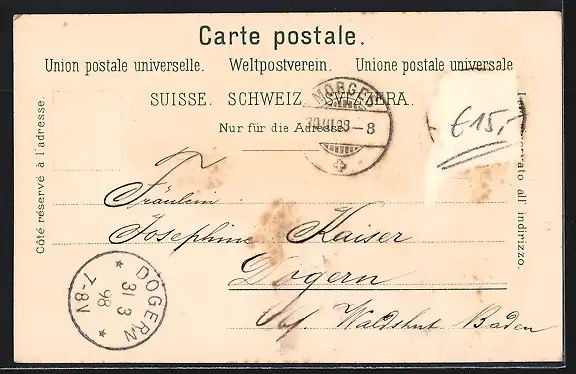 Carte postale.
Union postale universelle. Weltpostverein. Unione postale universale
SUISSE. SCHWEIZ. SVIZZERA.
Nur für die Adresse.
MORGES
30.III.98-8
€15,-
Côté réservé à l'adresse.
all'indirizzo.
Fräulein
Josephine Kaiser
Dogern
bf. Waldshut Baden
DOGERN
31 3
98
7-8V